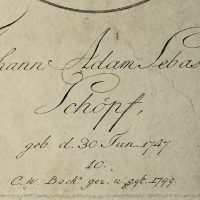 hann Adam Sebas
Schöpf,
geb. d. 30 Jun. 1747
10.
C. W. Bock gez. u. gest. 1799.